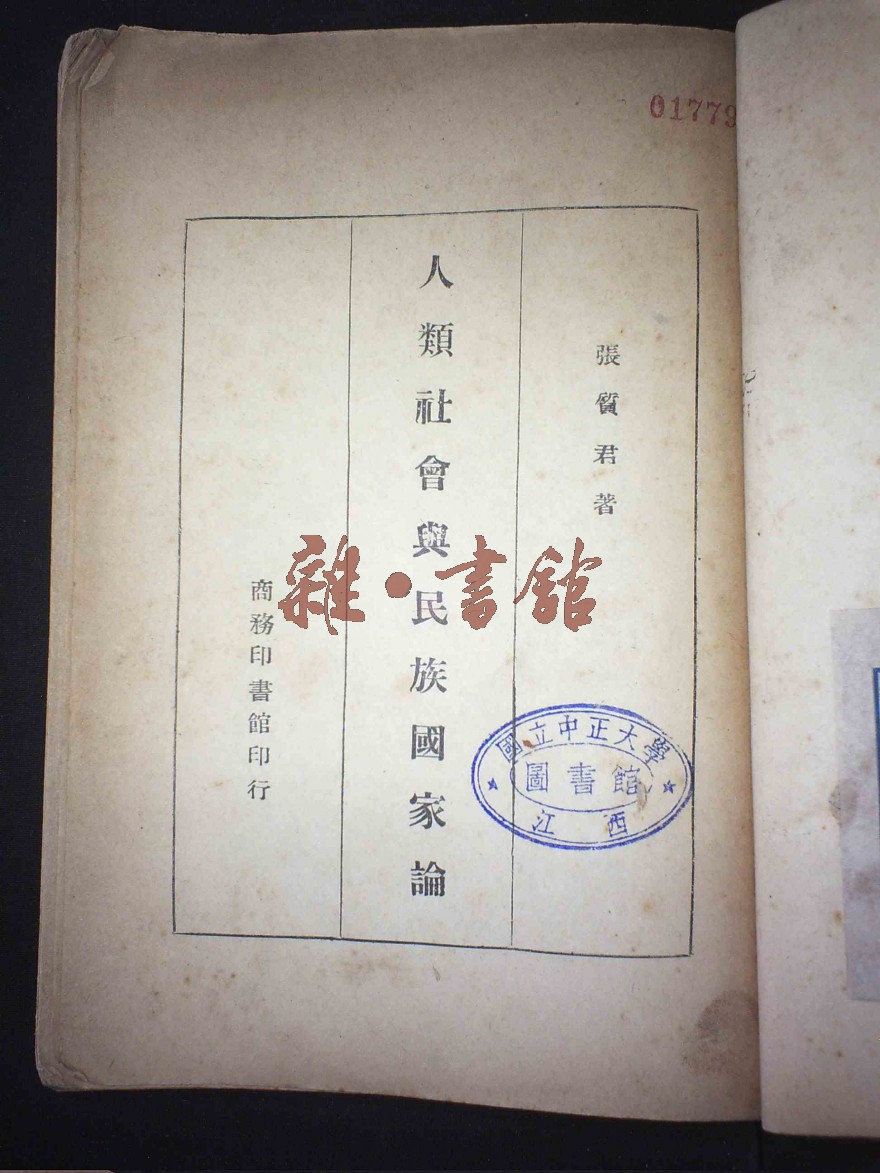 01779
張質君著
人類社會與民族國家論
商務印書館印行
雜·書館
國立中正大學
圖書館
江西